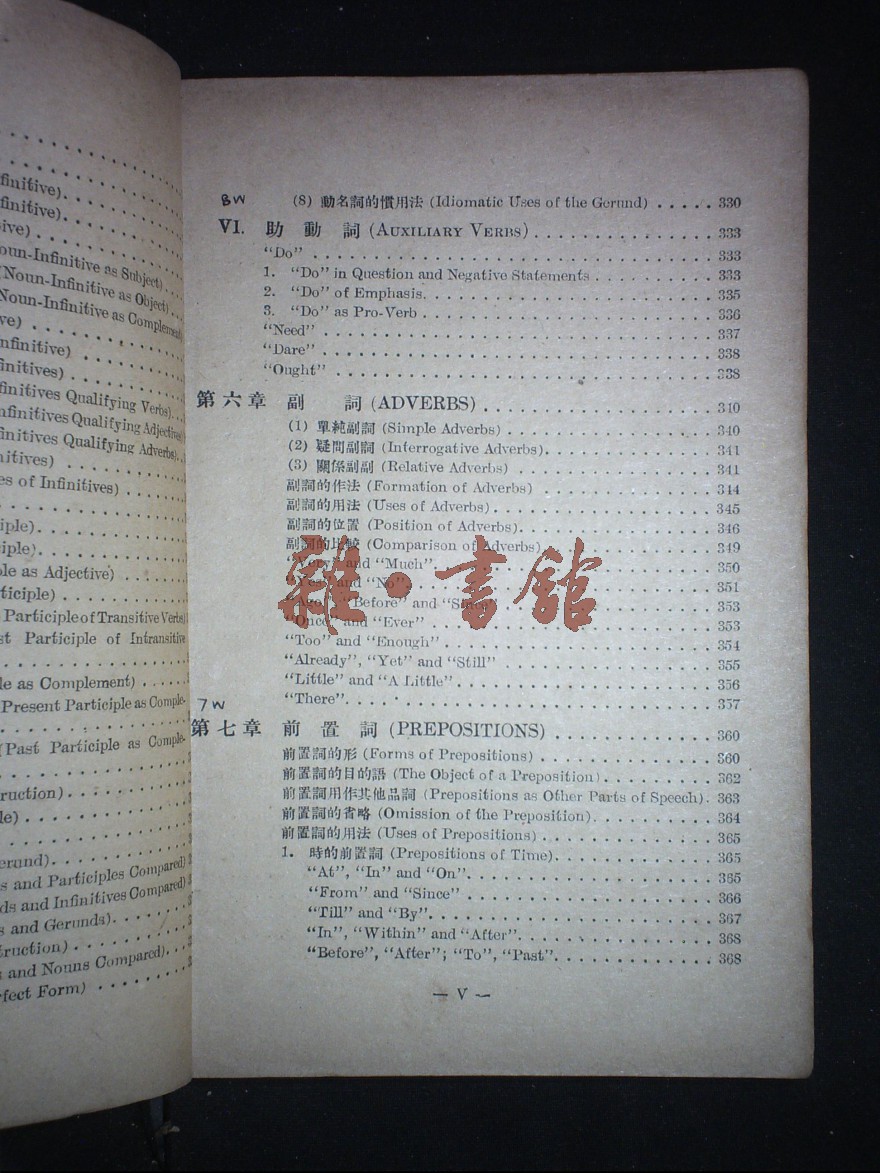 finitive)
finitive)
ive)
oun-Infinitive as Subject)
(Noun-Infinitive as Object)
Noun-Infinitive as Complement)
ve)
nfinitive)
initives)
finitives Qualifying Verbs)
nfinitives Qualifying Adjectives)
finitives Qualifying Adverbs)
nitives)
es of Infinitives)
iple)
iple)
ple as Adjective)
rticiple)
Participle of Transitive Verbs)
st Participle of Intransitive
le as Complement)
Present Participle as Comple-
(Past Participle as Comple-
ruction)
le)
erund)
s and Participles Compared)
ds and Infinitives Compared)
s and Gerunds)
truction)
s and Nouns Compared)
rfect Form)
BW
(8) 動名詞的慣用法 (Idiomatic Uses of the Gerund) ..... 330
VI. 助動詞 (AUXILIARY VERBS) ..... 333
“Do” ..... 333
1. “Do” in Question and Negative Statements ..... 333
2. “Do” of Emphasis ..... 335
3. “Do” as Pro-Verb ..... 336
“Need” ..... 337
“Dare” ..... 338
“Ought” ..... 338
第六章 副詞 (ADVERBS) ..... 340
(1) 單純副詞 (Simple Adverbs) ..... 340
(2) 疑問副詞 (Interrogative Adverbs) ..... 341
(3) 關係副副 (Relative Adverbs) ..... 341
副詞的作法 (Formation of Adverbs) ..... 344
副詞的用法 (Uses of Adverbs) ..... 345
副詞的位置 (Position of Adverbs) ..... 346
副詞的比較 (Comparison of Adverbs) ..... 349
“Very” and “Much” ..... 350
“Yes” and “No” ..... 351
“Ago”, “Before” and “Since” ..... 353
“Once” and “Ever” ..... 353
“Too” and “Enough” ..... 354
“Already”, “Yet” and “Still” ..... 355
“Little” and “A Little” ..... 356
“There” ..... 357
雜·書館
7W
第七章 前置詞 (PREPOSITIONS) ..... 360
前置詞的形 (Forms of Prepositions) ..... 360
前置詞的目的語 (The Object of a Preposition) ..... 362
前置詞用作其他品詞 (Prepositions as Other Parts of Speech) . 363
前置詞的省略 (Omission of the Preposition) ..... 364
前置詞的用法 (Uses of Prepositions) ..... 365
1. 時的前置詞 (Prepositions of Time) ..... 365
“At”, “In” and “On” ..... 365
“From” and “Since” ..... 366
“Till” and “By” ..... 367
“In”, “Within” and “After” ..... 368
“Before”, “After”; “To”, “Past” ..... 368
— V —